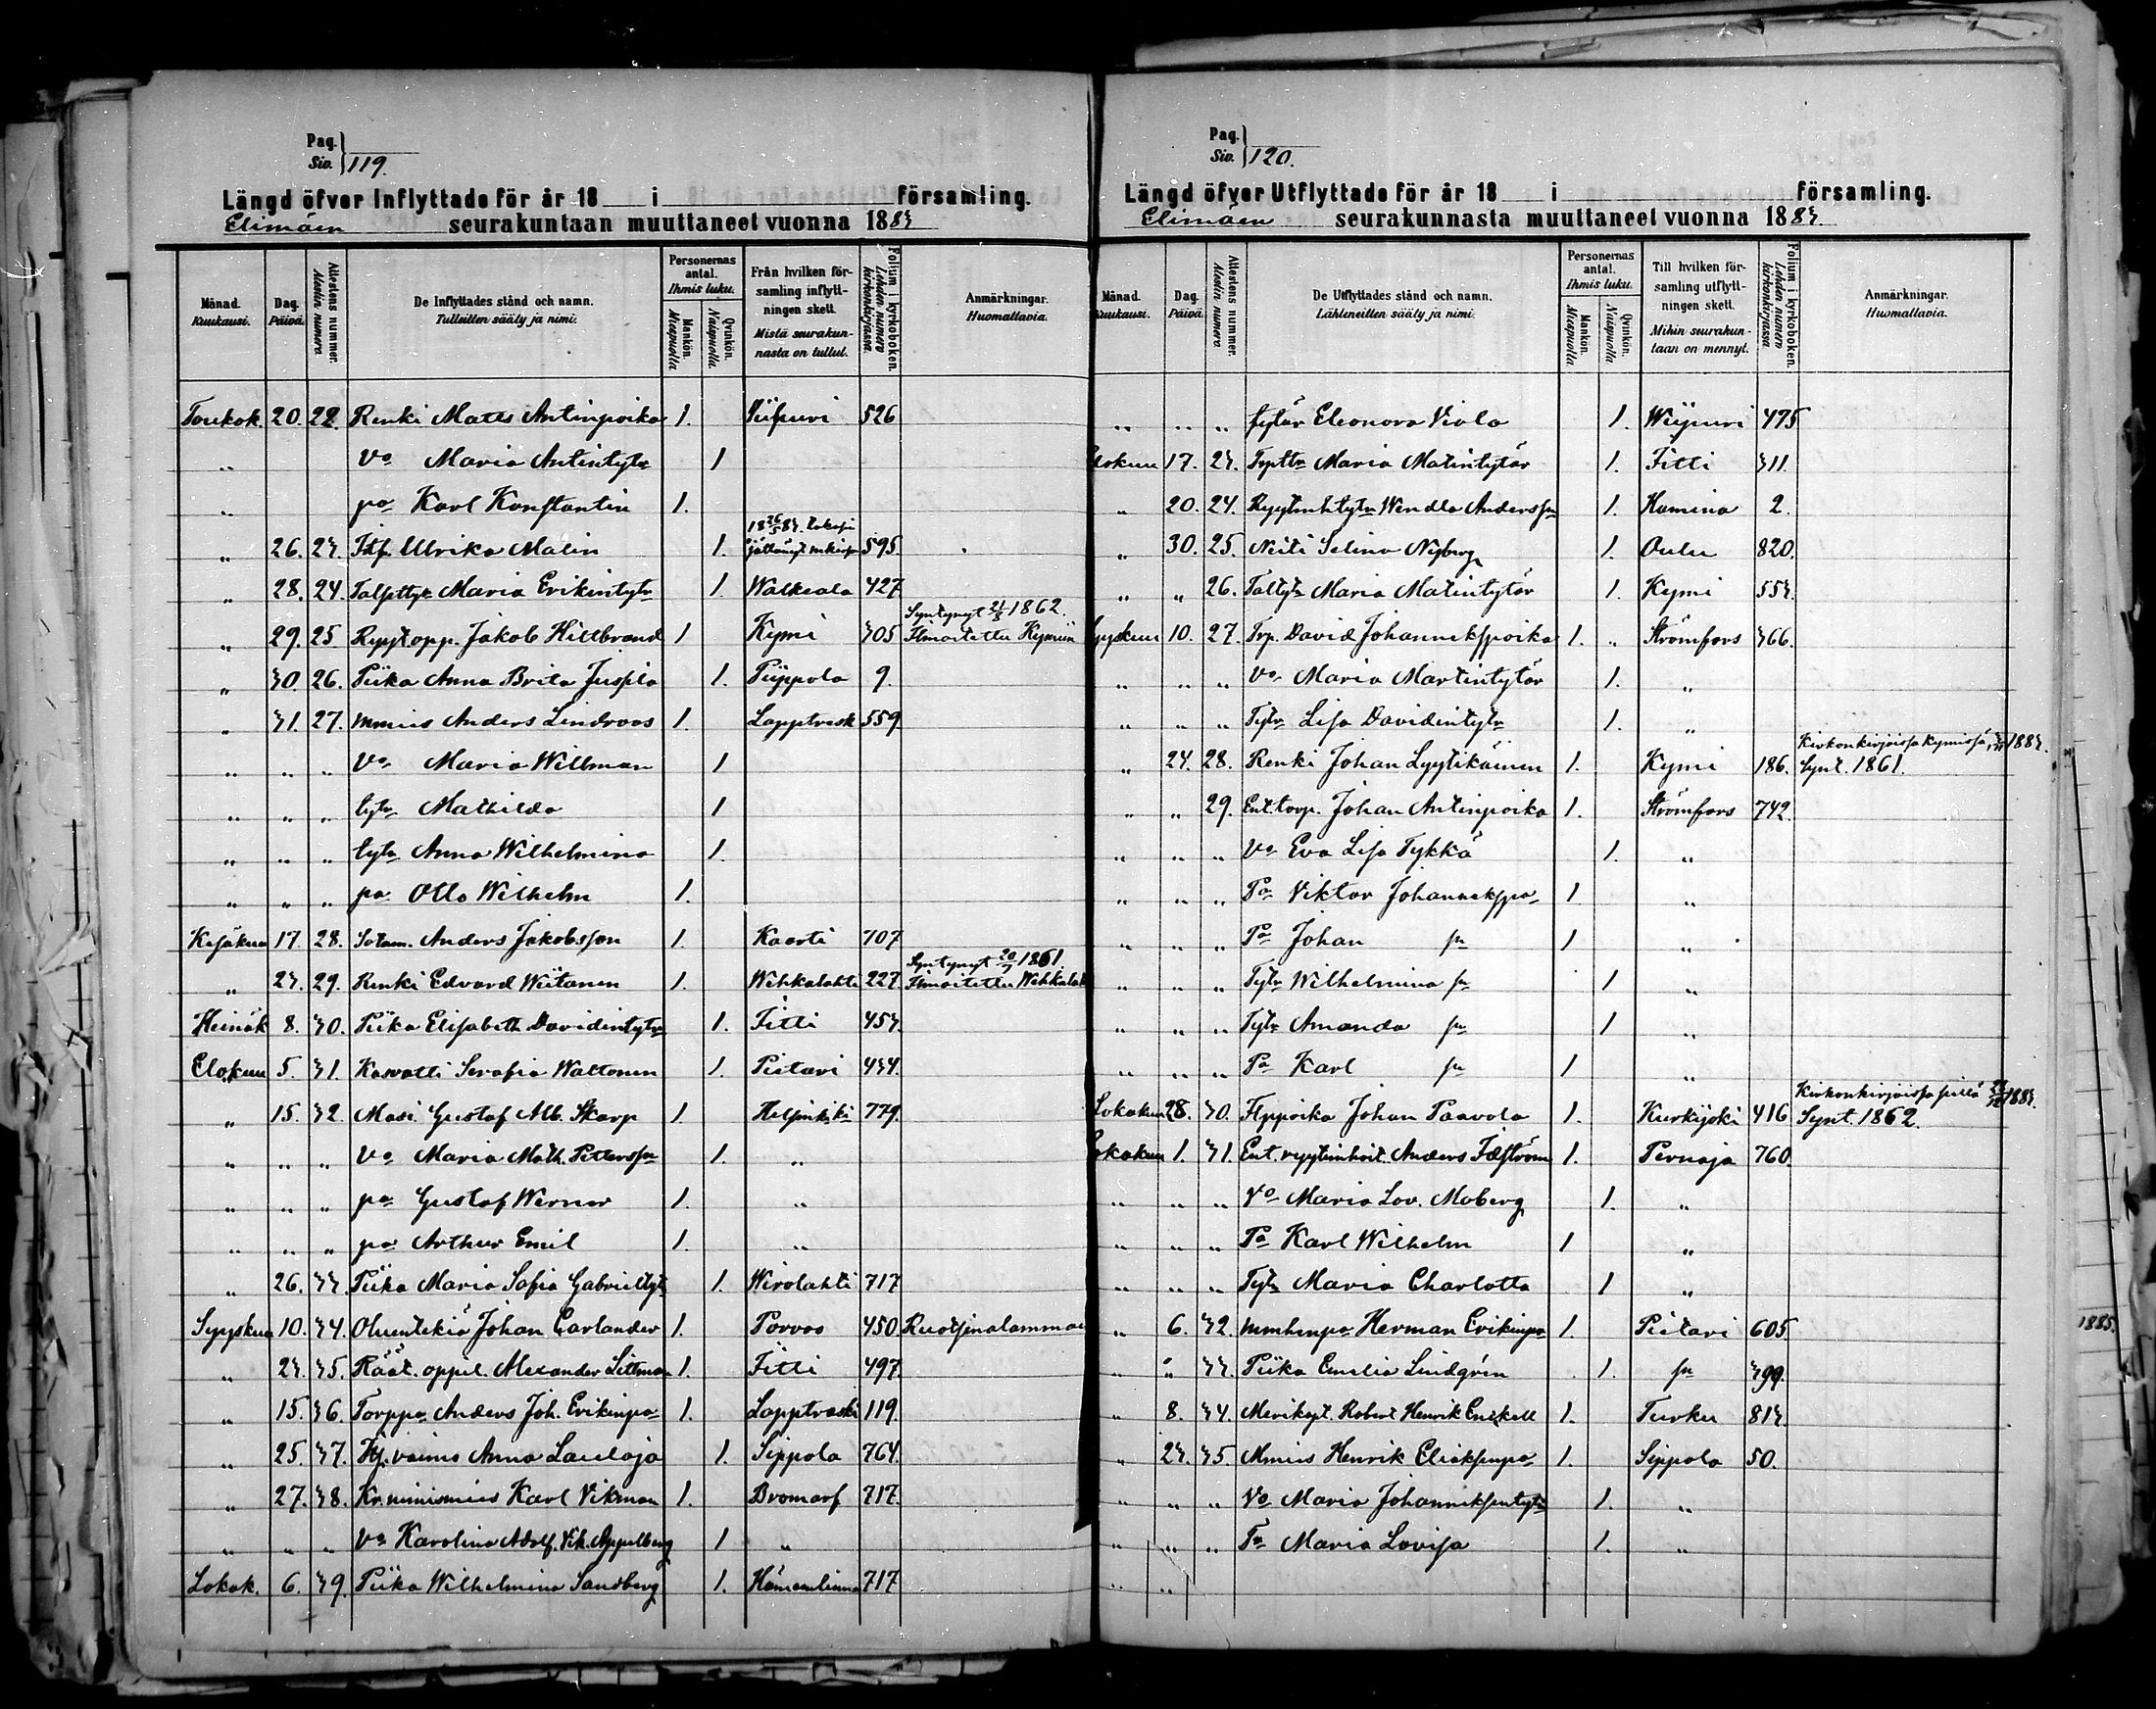 Pag.
Siv. 119.
Längd öfver Inflyttade för år 18 i församling.
Elimäen seurakuntaan muuttaneet vuonna 1883
Månad. Kuukausi. Dag. Päivä. Attestens nummer. Alestin numero. De Inflyttades stånd och namn. Tulleitten sääty ja nimi. Personernas antal. Ihmis luku. Mankön. Miespuolia Qvinkön. Naispuolia Från hvilken församling inflyttningen skett. Mistä seurakunnasta on tullut. Folium i kyrkoboken. Lehden numero kirkonkirjassa. Anmärkningar. Huomattavia.
Toukok. 20. 22. Renki Matts Antinpoika 1. Viipuri 526
„ Vo Maria Antintytr 1
„ po Karl Konstantin 1.
„ 26. 23. Itf. Ulrika Malin 1. 595.
„ 28. 24. Talpttyr Maria Erikintytr 1. Walkeala 427
Syntynyt 1862.
„ 29. 25 Ruotopp. Jakob Hiltbrand 1 Kymi 305 Ilmoitettu Kymiin
„ 30. 26. Piika Anna Brita Juspla 1. Pyppola 9.
„ 31. 27. mmies Anders Lindroos 1. Lapptresk 559.
„ „ „ Vo Maria Willman 1
„ „ „ tytr Mathilda 1
„ „ „ tytr Anna Wilhelmina 1.
„ „ „ po Otto Wilhelm 1.
Kesäkuu 17. 28. Sotam. Anders Jakobsson 1. Kaarti 707
Syntynyt 20/7 1861.
„ 23. 29. Renki Edvard Wiitanen 1. Wehkalahti 227. Ilmoitettu Wehkalah
Heinäk 8. 30. Piika Elisabeth Davidintytr 1. Iitti 453.
Elokuu 5. 31. Kasvatti Serafia Waltonen 1. Pietari 434.
„ 15. 32. Masi. Gustaf Alb. Skarp 1. Helsinkiki 779.
„ „ „ Vo Maria Math. Pettersson 1. „
„ „ „ po Gustaf Werner 1. „
„ „ „ po Arthur Emil 1. „
„ 26. 33. Piika Maria Sofia Gabrieltytr 1. Wirolahti 717
Syyskuu 10. 34. Oluentekiä Johan Carlander 1. Porvoo 450 Ruotsinalammae
„ 23. 35. Räät. oppil. Alexander Littman 1. Iitti 497.
„ 15. 36. Torppo Anders Joh. Erikinpo 1. Lapptreski 119.
„ 25. 37. Itj. vaimo Anna Laulaja 1. Sippola 764.
„ 27. 38. Kr.nimismies Karl Vikman 1. Bromarf 717.
„ „ „ Vo Karolina Adolf. Vik. Appelberg 1 „
Lokok. 6. 39. Piika Wilhelmina Sandberg 1. Hämeenlinna 717
Pag.
Siv. 120.
Längd öfver Utflyttade för år 18 i församling.
Elimäen seurakunnasta muuttaneet vuonna 1883.
Månad. Kuukausi. Dag. Päivä. Attestens nummer. Alestin numero. De Utflyttades stånd och namn. Lähteneitten sääty ja nimi. Personernas antal. Ihmis luku. Mankön. Miespuolia Qvinkön. Naispuolia Till hvilken församling utflyttningen skett. Mihin seurakuntaan on mennyt. Folium i kyrkoboken. Lehden numero kirkonkirjassa. Anmärkningar. Huomattavia.
„ „ „ tytär Eleonora Viola 1. Wiipuri 475
Elokuu 17. 23. Tryttr Maria Matintytär 1. Iitti 311.
„ 20. 24. Wendla Andersson 1. Hamina 2.
„ 30. 25. Neiti Selina Nyberg 1. Oulu 820.
„ „ 26. Taltyr Maria Matintytär 1. Kymi 553.
Syyskuu 10. 27. Trp. David Johanneksspoika 1. „ Strömfors 366.
„ „ „ Vo Maria Martintytär 1. „
„ „ „ Tytr Lisa Davidintytr 1. „
Kirkonkirjoissa Kymissä, 1883.
„ 24. 28. Renki Johan Lyytikäinen 1. Kymi 186. Synt. 1861.
„ „ 29. Ent. torp. Johan Antinpoika 1. Strömfors 742.
„ „ „ Vo Eva Lisa Tykkä 1. „
„ „ „ Po Viktor Johanneksspo 1 „
„ „ „ Po Johan sn 1 „
„ „ „ Tytr Wilhelmina sn 1 „
„ „ „ Tytr Amanda sn 1 „
„ „ „ Po Karl sn 1 „
Kirkonkirjoissa siellä 1883.
Lokakuu 28. 30. Johan Paavola 1. Kurkijoki 416 Synt. 1862.
Lokakuu 1. 31. Ent. ryytimhoit. Anders Idström 1. Pernaja 760
„ „ „ Vo Maria Lov. Moberg 1. „
„ „ „ Po Karl Wilhelm 1 „
„ „ „ Tytr Maria Charlotta 1 „
„ 6. 32. mmhenpo Herman Erikinpo 1. Pietari 605 1885.
„ „ 33. Piika Emelia Lindgrén 1. sn 399.
„ 8. 34. Merikapt. Robert Henrik Enckell 1. Turku 813
„ 23. 35 Mmies Henrik Eliaksenpo 1. Sippola 50.
„ „ „ Vo Maria Johanneksentytr 1. „
„ „ „ To Maria Lovisa 1. „
„ „